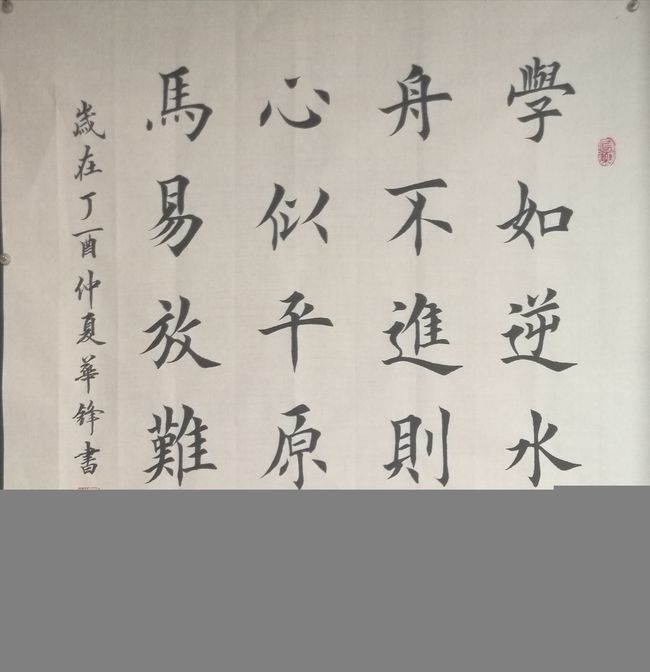 學如逆水
舟不進則
心似平原
馬易放難
歲在丁酉仲夏華鋒書